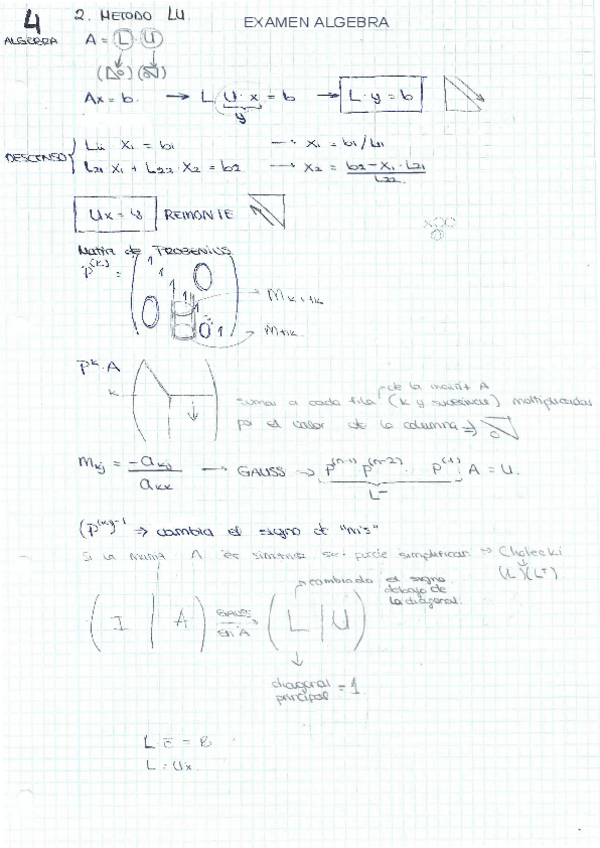 4
ALGEBRA
2. METODO LU
EXAMEN ALGEBRA
A = L · U
Ax = b → L U · x = b → L · y = b
y
DESCENSO
L11 X1 = b1 → X1 = b1/L11
L21 X1 + L22 · X2 = b2 → X2 = b2 - X1 · L21 / L22
Ux = y REMONTE
Matriz de FROBENIUS
P(k) =
1 1 1 1 1
0 0 0
P^k · A
k
de la matriz A
sumar a cada fila (k y sucesivas) multiplicadas
por el valor de la columna ⇒
0
mkj = -akj / akk → GAUSS → P(n-1) P(n-2) P(1) A = U.
L-
(P(k))-1 ⇒ cambia el signo de "m's"
Si la matriz A es simetrica se puede simplificar → Choleski
(L)(LT)
cambiado el signo
debajo de
la diagonal.
( I | A ) GAUSS ( L | U )
en A
diagonal
principal = 1